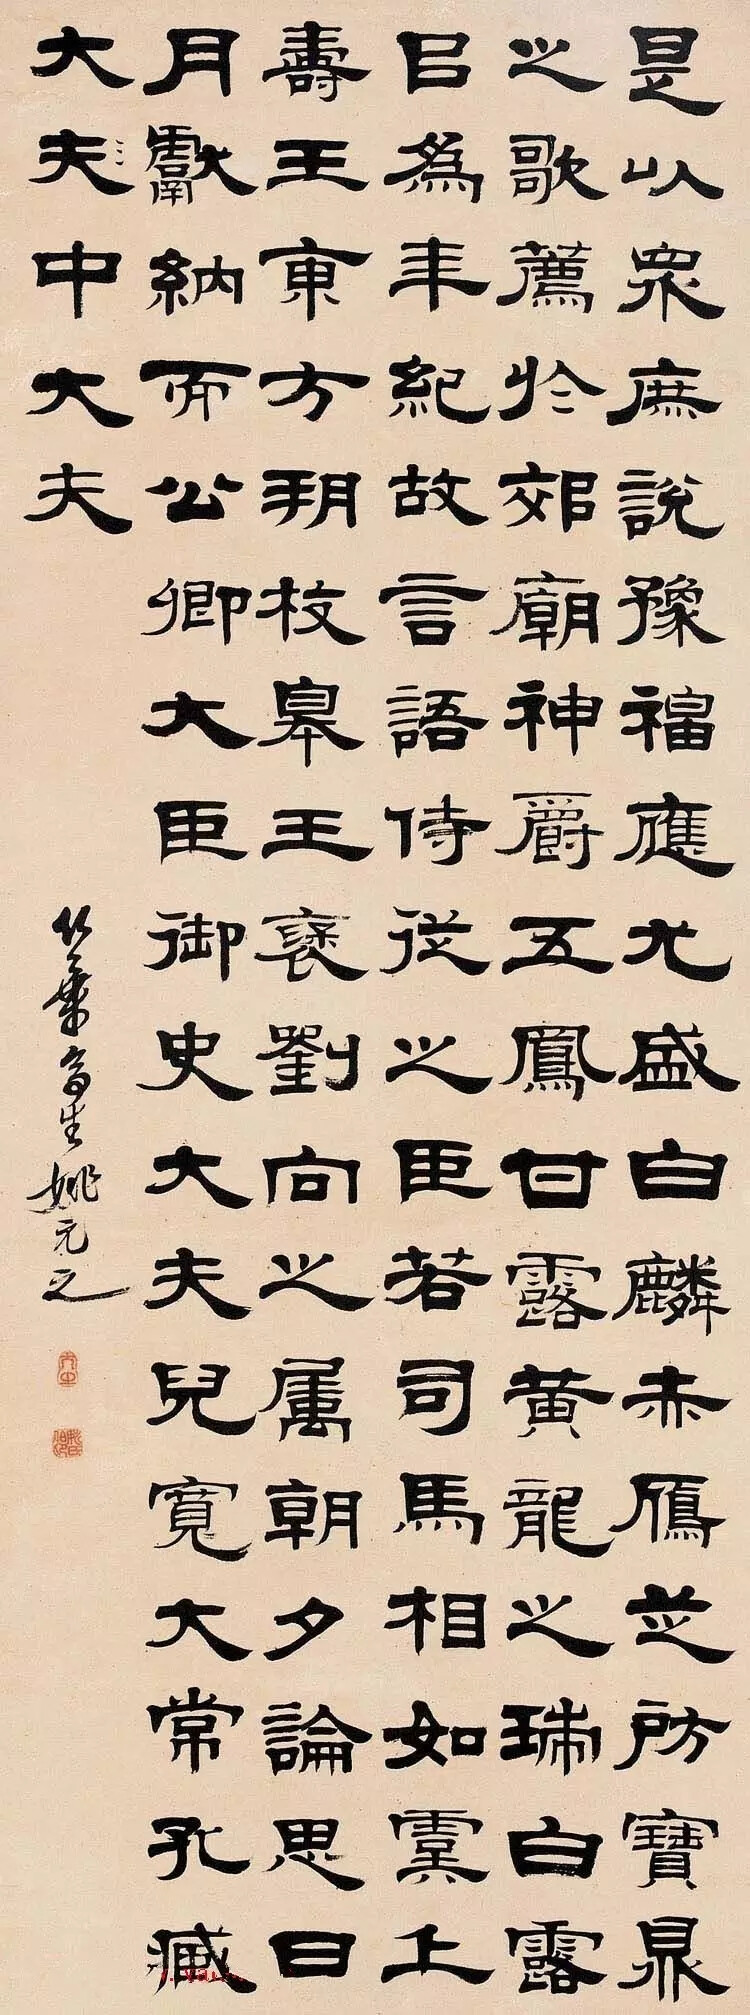 是以眾庶說豫福應尤盛白麟赤鴈芝房寶鼎
之歌薦於郊廟神爵五鳳甘露黃龍之瑞白露
㠯為年紀故言語侍從之臣若司馬相如虞丘
壽王東方朔枚皋王褒劉向之屬朝夕論思日
月獻納而公卿大臣御史大夫兒寬大常孔臧
大夫中大夫
竹葉亭生姚元之